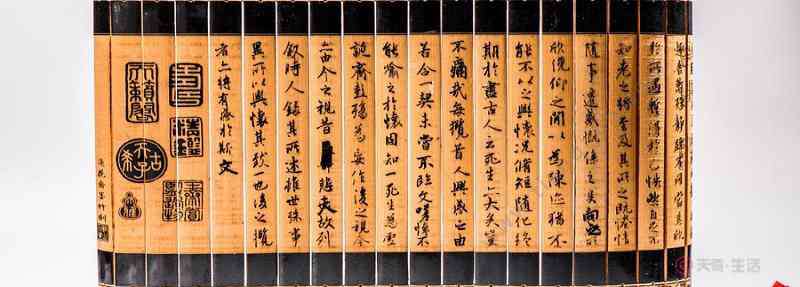 趣舍萬殊靜躁不同當其欣
於所遇暫得於己快然自足不
知老之將至及其所之既倦情
隨事遷感慨係之矣向之所
欣俛仰之間以為陳迹猶不
能不以之興懷況脩短隨化終
期於盡古人云死生亦大矣豈
不痛哉每攬昔人興感之由
若合一契未嘗不臨文嗟悼不
能喻之於懷固知一死生為虛
誕齊彭殤為妄作後之視今
亦由今之視昔悲夫故列
敘時人錄其所述雖世殊事
異所以興懷其致一也後之攬
者亦將有感於斯文
天奇·生活